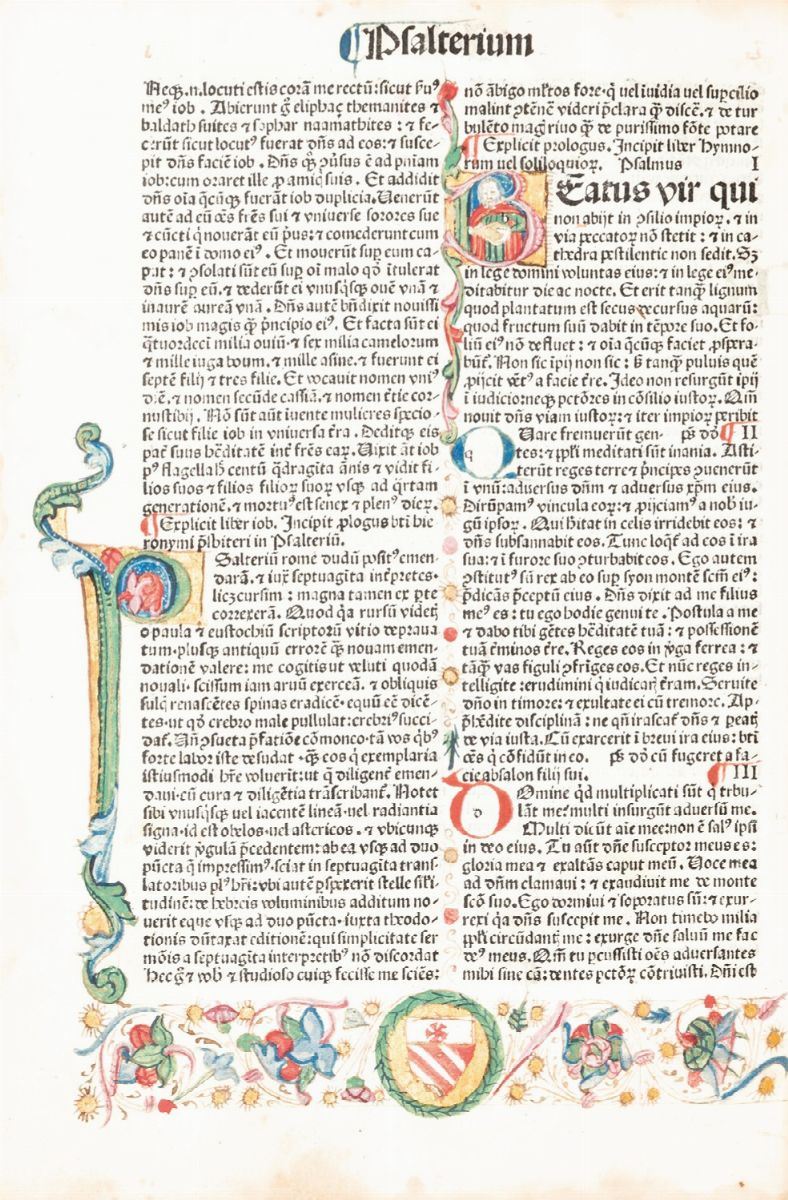 Psalterium
Neqȝ .n. locuti estis corā me rectū: sicut ſuꝰ
meꝰ iob . Abierunt gͦ eliphaç themanites ⁊
baldath suites ⁊ sophar naamathites : ⁊ fe-
cerūt sicut locutꝰ fuerat dn̄s ad eos: ⁊ susce-
pit dn̄s faciē iob . Dn̄s qȝ ꝯuersus ē ad pn̄iam
iob: cum oraret ille ꝓ amicis suis . Et addidit
dn̄s oīa q̄cūqȝ fuerāt iob duplicia. Venerūt
autē ad eū oēs frēs sui ⁊ vniverse sorores sue
⁊ cūcti q̄ nouerāt eū pꝰus: ⁊ comederunt cum
eo panē ī domo eiꝰ . Et mouerūt suꝑ eum ca-
put: ⁊ ꝯsolati sūt eū suꝑ oī malo qō ītulerat
dn̄s suꝑ eū . ⁊ dederūt ei vnusqisqȝ ouē vnā ⁊
inaurē aureā vnā . Dn̄s autē bn̄dixit nouissi
mis iob magis q̄ȝ pͥncipio eiꝰ . Et facta sūt ei
q̄tuordecī milia ouiū . ⁊ sex milia camelorum
⁊ mille iuga boum . ⁊ mille asine . ⁊ fuerunt ei
septē filij ⁊ tres filie . Et vocauit nomen vniꝰ
diē . ⁊ nomen secūde cassiā . ⁊ nomen t̄tie cor-
nustibij . Nō sūt aūt īuente mulieres specio-
se sicut filie iob in vniuersa t̄ra . Deditqȝ eis
pat̄ suus h̄editatē int̄ frēs eaꝝ . Vixit āt iob
pꝰ flagella h̄ centū q̄dragīta ānis ⁊ vidit fi-
lios suos ⁊ filios filioꝝ suoꝝ vsqȝ ad q̄rtam
generationē . ⁊ mortuꝰ est senex ⁊ plenꝰ dieꝝ .
Explicit liber iob . Incipit ꝓlogus bt̄i hie
ronymi p̄sbiteri in Psalteriū .
Psalteriū rome dudū positꝰ emen-
darā . ⁊ iux̄ septuagīta int̄pretes .
licȝ cursim : magna tamen ex ꝑte
correxerā . Quod qa rursū videtꝭ
o paula ⁊ eustochiū scriptorū vitio deprava
tum . plusqȝ antiquū errorē q̄ȝ nouam emen-
dationē valere : me cogitis ut veluti quodā
nouali . scissum iam aruū exerceā . ⁊ obliquis
sulcꝭ renascētes spinas eradicē . equū cē dicē-
tes . ut qō crebro male pullulat : crebriꝰ succi
dat̄ . Vn̄ ꝯsueta p̄fatiōe cōmoneo . tā vos qbꝰ
forte labor iste desudat . q̄ȝ eos q̄ exemplaria
istiusmodi hr̄e voluerīt : ut q̄ diligent̄ emen-
daui . cū cura ⁊ diligētia trāscribant̄ . Notet
sibi vnusqisqȝ uel iacentē lineā . uel radiantia
signa . id est obelos . uel astericos . ⁊ vbicunqȝ
viderit ꝟgulā p̄cedentem : ab ea vsqȝ ad duo
pūcta q̄ impressimꝰ . sciat in septuagīta trans
latoribus plꝰ hr̄i : vbi autē ꝑspexerit stelle sili-
tudinē : de hebreis voluminibus additum no-
uerit eque vsqȝ ad duo pūcta . iuxta theodo-
tionis dūtaxat editionē : qui simplicitate ser
mōis a septuagīta interpretibꝰ nō discordat
Hec gͦ ⁊ vob̄ ⁊ studioso cuiqȝ fecisse me sciēs :
nō ābigo ml̄tos fore . q̄ vel īuidia uel suꝑcilio
malint ꝯtēnē videri p̄clara q̄ȝ discē . ⁊ de tur
bulēto magͥ riuo q̄ȝ de purissimo fōte potare
Explicit prologus . Incipit liber hymno-
rum uel soliloquioꝝ . Psalmus I
Beatus vir qui
non abijt in ꝯsilio impioꝝ . ⁊ in
via peccatoꝝ nō stetit : ⁊ in ca-
thedra pestilentie non sedit . Sȝ
in lege domini voluntas eius : ⁊ in lege eiꝰ me-
ditabitur die ac nocte . Et erit tanqȝ lignum
quod plantatum est secus decursus aquarū :
quod fructum suū dabit in tēpore suo . Et fo-
liū eiꝰ nō defluet : ⁊ oīa q̄cūqȝ faciet ꝓspera-
būt̄ . Non sic īpij non sic : ß tanqȝ puluis quē
ꝓijcit vētꝰ a facie t̄re . Ideo non resurgūt īpij
ī iudicio : neqȝ pctōres in cōsilio iustoꝝ . Qm̄
nouit dn̄s viam iustoꝝ : ⁊ iter impioꝝ peribit
Quare fremuerūt gen- ps̄ dō II
tes : ⁊ ppl̄i meditati sūt inania . Asti-
terūt reges terre ⁊ pͥncipes ꝯuenerūt
ī vnū : aduersus dn̄m ⁊ aduersus xp̄m eius .
Dirūpamꝰ vincula eoꝝ : ⁊ ꝓijciamꝰ a nob̄ iu-
gū ipsoꝝ . Qui hītat in celis irridebit eos : ⁊
dn̄s subsannabit eos . Tunc loqt̄ ad eos ī ira
sua : ⁊ ī furore suo ꝯturbabit eos . Ego autem
ꝯstitutꝰ sū rex ab eo suꝑ syon montē scm̄ eiꝰ :
p̄dicās p̄ceptū eius . Dn̄s dixit ad me filius
meꝰ es : tu ego hodie genui te . Postula a me
⁊ dabo tibi gētes h̄editatē tuā : ⁊ possessionē
tuā t̄minos t̄re . Reges eos in ꝟga ferrea : ⁊
tāqȝ vas figuli ꝯfriges eos . Et nūc reges in-
telligite : erudimini q̄ iudicatꝭ t̄ram . Seruite
dn̄o in timore : ⁊ exultate ei cū tremore . Ap-
p̄h̄edite disciplinā : ne qn̄ irascat̄ dn̄s ⁊ ꝑeatꝭ
de via iusta . Cū exarcerit ī breui ira eius : bt̄i
oēs q̄ cōfidūt in eo . ps̄ dō cū fugeret a fa-
cie absalon filij sui . III
Domine qd multiplicati sūt q̄ tribu-
lāt me : multi insurgūt aduersū me .
Multi dicūt aīe mee : non ē salꝰ ipsi
in deo eius . Tu aūt dn̄e susceptor meus es :
gloria mea ⁊ exaltās caput meū . Voce mea
ad dn̄m clamaui : ⁊ exaudiuit me de monte
scō suo . Ego dormiui ⁊ soporatus sū : ⁊ exur-
rexi qa dn̄s suscepit me . Non timebo milia
ppl̄i circūdantꝭ me : exurge dn̄e saluū me fac
deꝰ meus . Qm̄ tu ꝑcussisti oēs aduersantes
mihi sine cā : dentes pctōꝝ cōtriuisti . Dn̄i est